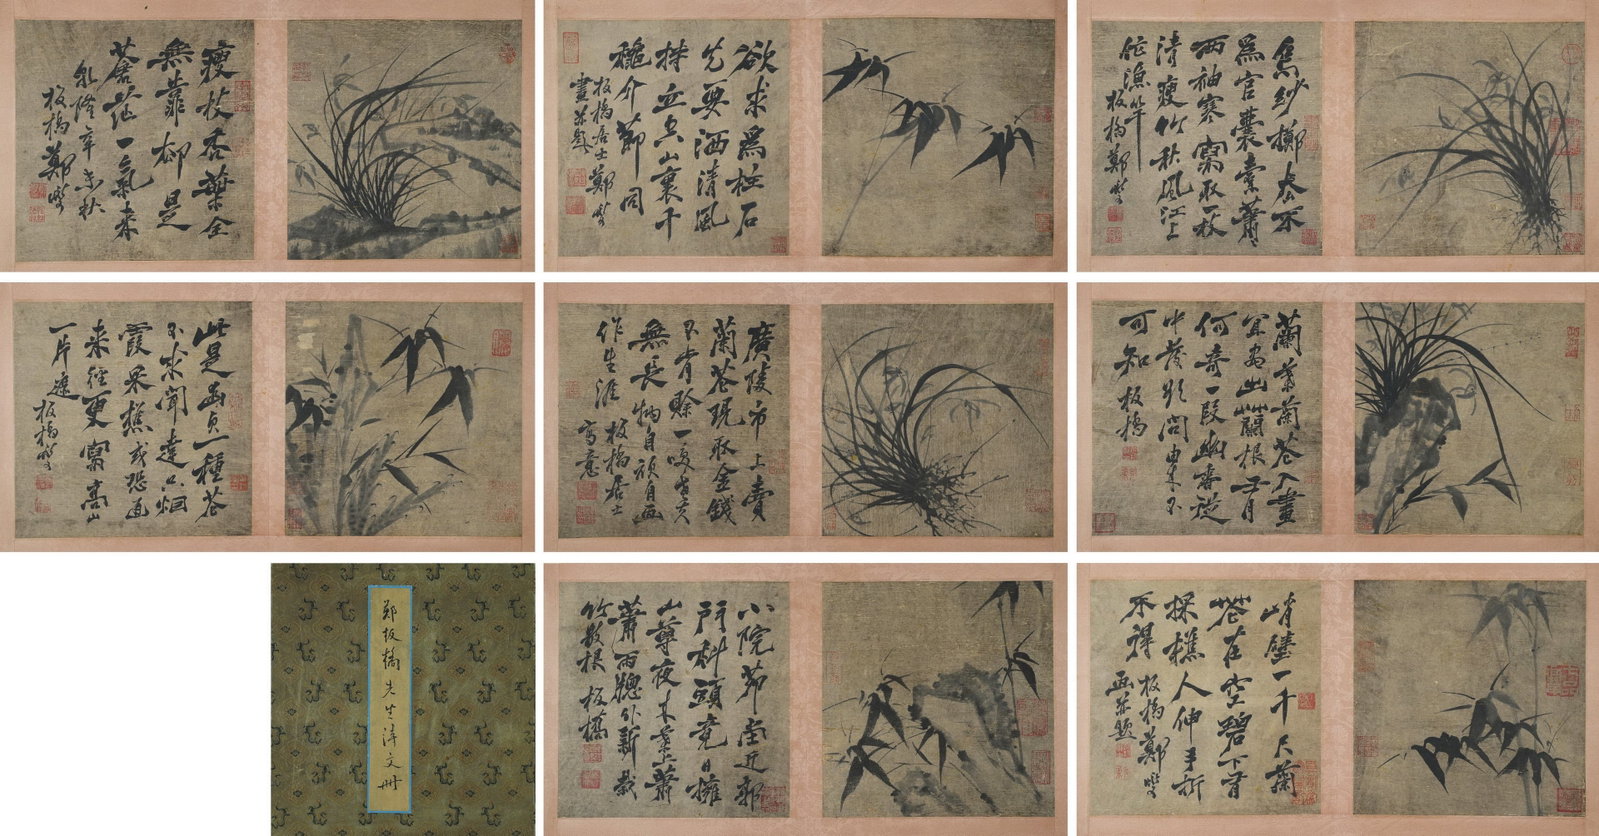 瘦枝香葉全
無靠却是
蒼茫一氣來
乾隆辛未秋
板橋鄭燮
欲求爲柱石
先要洒清風
山裏千
介節同
板橋居士鄭燮
畫並題
烏紗擲去不
爲官囊橐蕭
兩袖寒寫取一枝
清瘦竹秋風江上
作漁竿
板橋鄭燮
此是幽貞一種花
不求聞達只烟
霞采樵或恐通
來徑更寫高山
一片遮
板橋燮
廣陵市上賣
蘭花現取金錢
不肯賒一
無長物自頑自画
作生涯
板橋居士
寫意
蘭葉蘭花入畫
宜
何奇一段幽香從
中發欲問由來不
可知板橋
鄭板橋先生詩文冊
小院茆堂近郭
門科頭竟日擁
山尊夜來葉上蕭
蕭雨牕外新栽
竹數根 板橋
峭壁一千尺蘭
花在空碧下有
採樵人伸手折
不得
板橋鄭燮
画並題